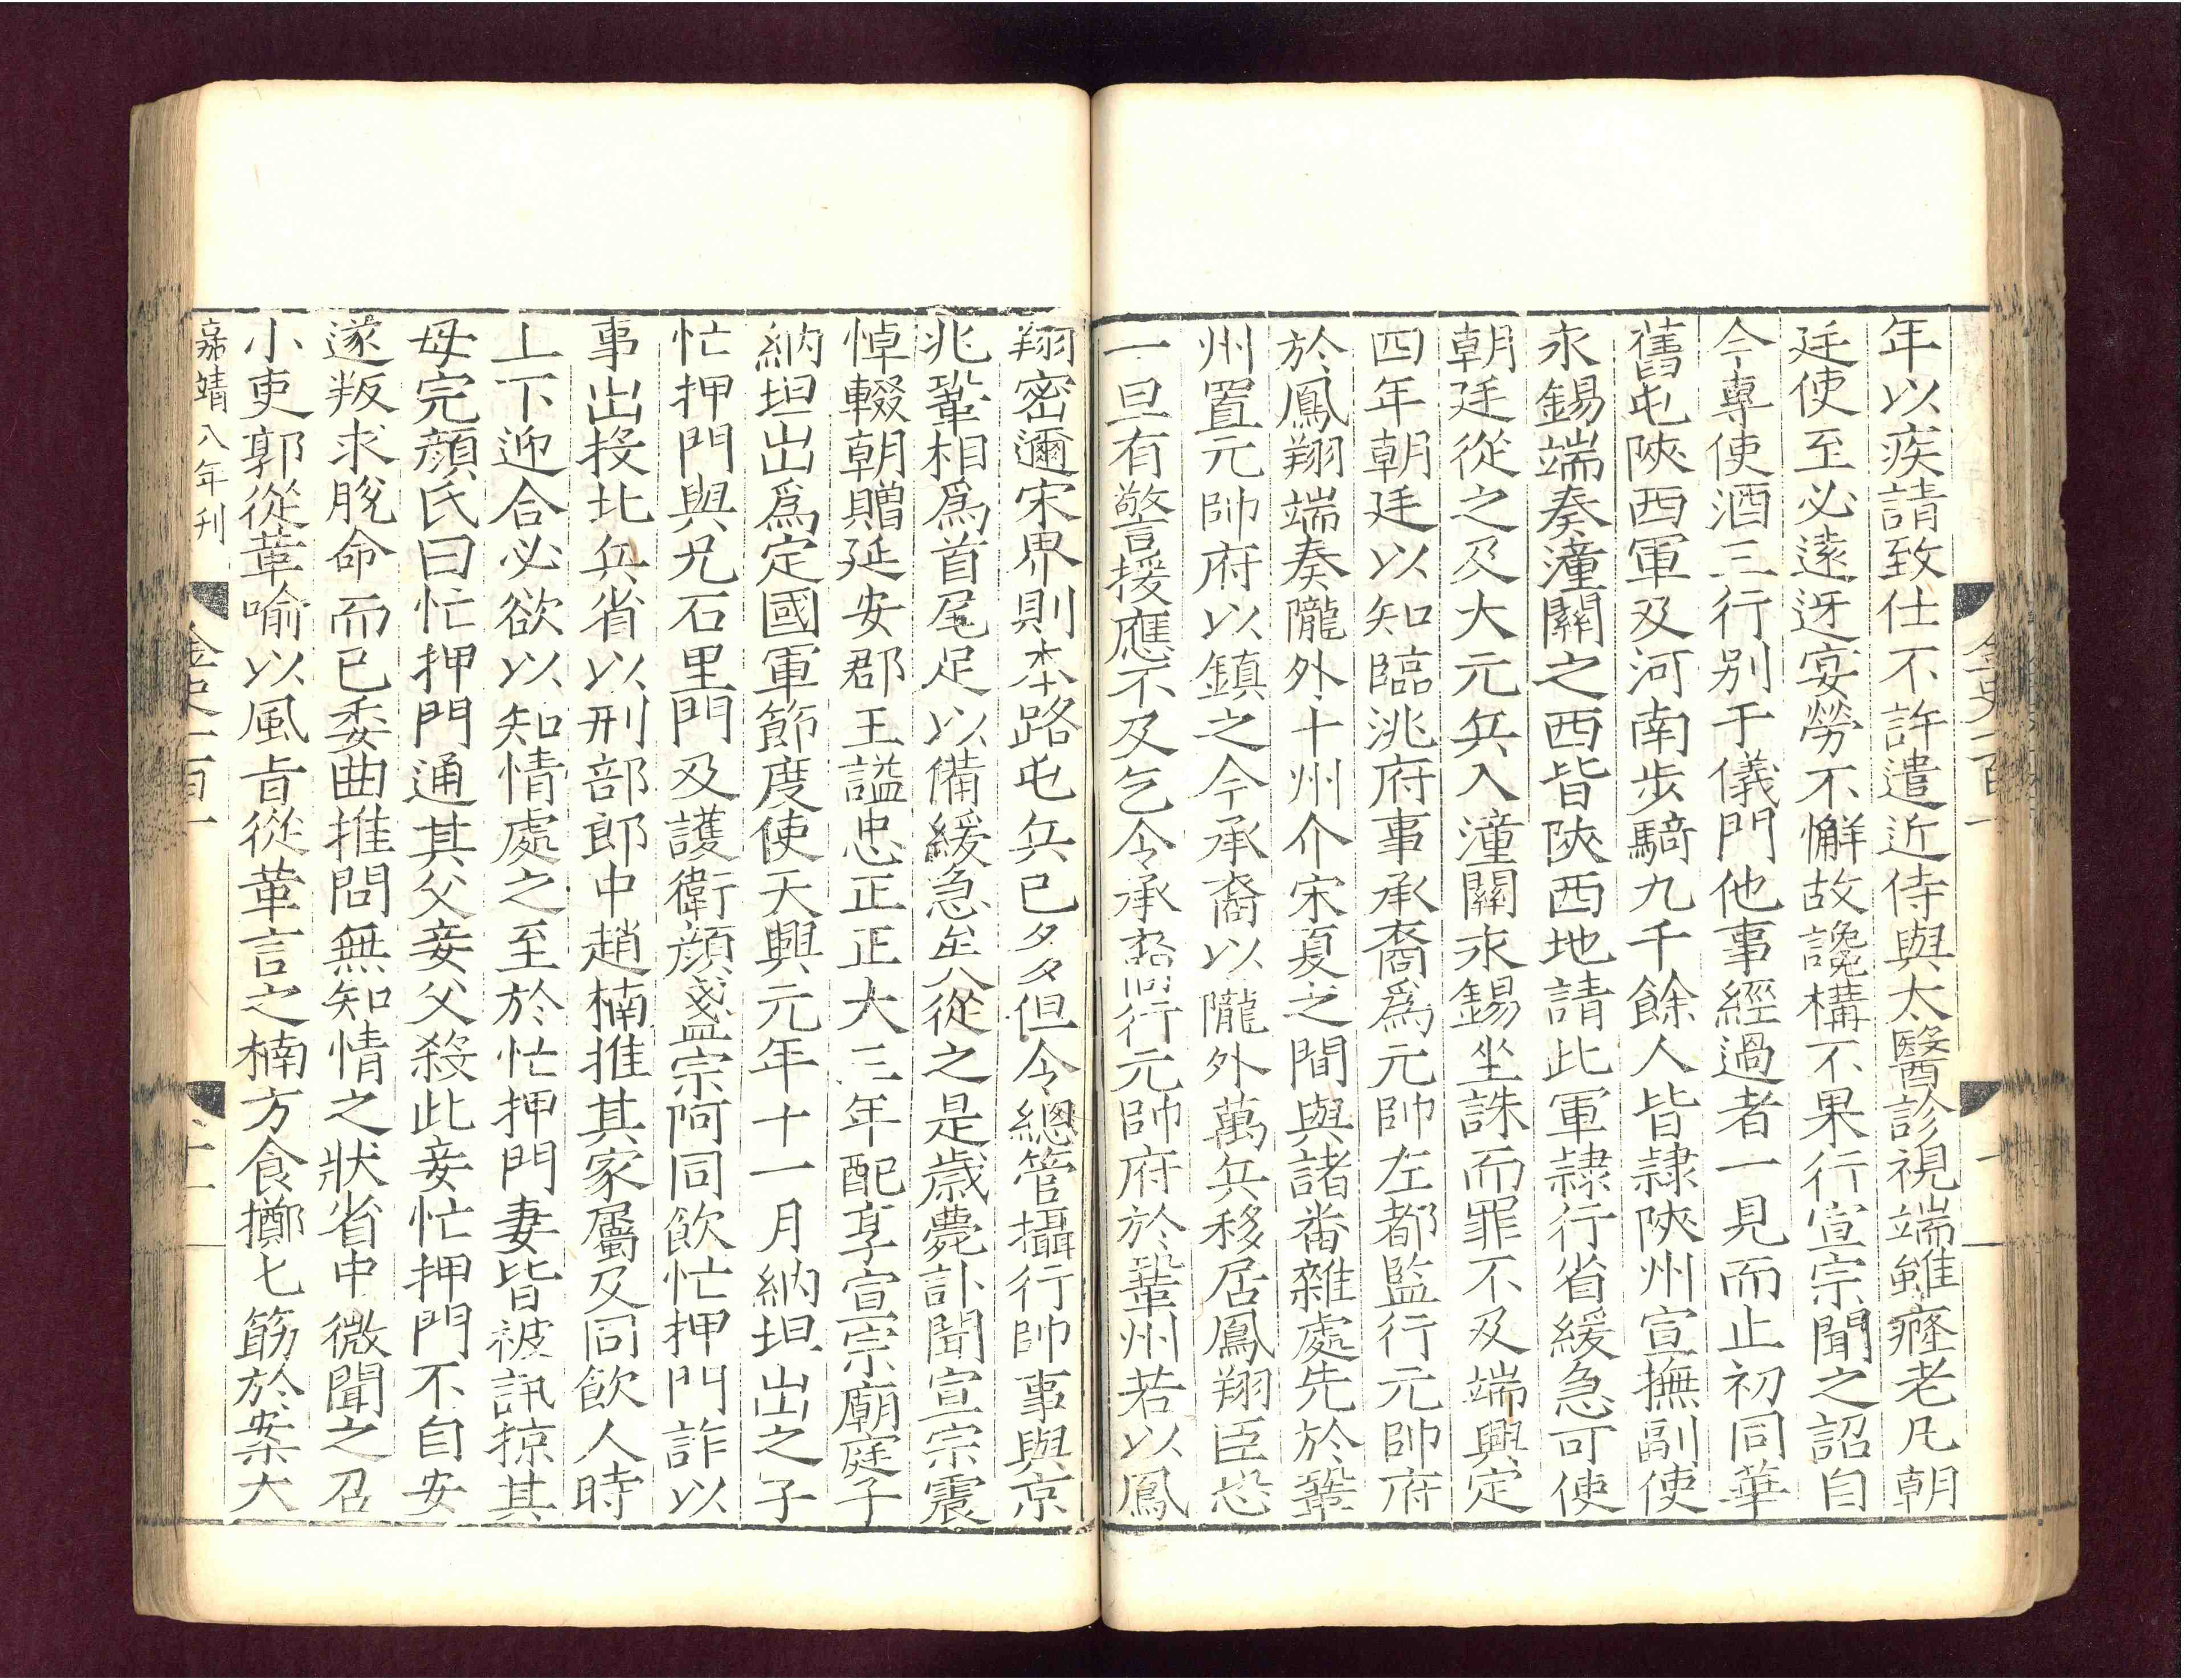 年以疾請致仕不許遣近侍與太醫診視端雖癃老凡朝
廷使至必遠迓宴勞不懈故讒構不果行宣宗聞之詔自
今專使酒三行别于儀門他事經過者一見而止初同華
舊屯陝西軍及河南步騎九千餘人皆隷陝州宣撫副使
永錫端奏潼關之西皆陝西地請此軍隷行省緩急可使
朝廷從之及大元兵入潼關永錫坐誅而罪不及端興定
四年朝廷以知臨洮府事承裔爲元帥左都監行元帥府
於鳳翔端奏隴外十州介宋夏之間與諸番雜處先於鞏
州置元帥府以鎮之今承裔以隴外萬兵移居鳳翔臣恐
一旦有警援應不及乞令承裔行元帥府於鞏州若以鳳
翔密邇宋界則本路屯兵已多但令總管攝行帥事與京
兆鞏相爲首尾足以備緩急矣從之是歲薨訃聞宣宗震
悼輟朝贈延安郡王謚忠正正大三年配享宣宗廟庭子
納坦出爲定國軍節度使天興元年十一月納坦出之子
忙押門與兄石里門及護衛顔盞宗阿同飲忙押門詐以
事出投北兵省以刑部郎中趙楠推其家屬及同飲人時
上下迎合必欲以知情處之至於忙押門妻皆被訊掠其
母完顔氏曰忙押門通其父妾父殺此妾忙押門不自安
遂叛求脫命而已委曲推問無知情之狀省中微聞之召
小吏郭從革喻以風旨從革言之楠方食擲匕筯於案大
嘉靖八年刊
金史一百一
十一